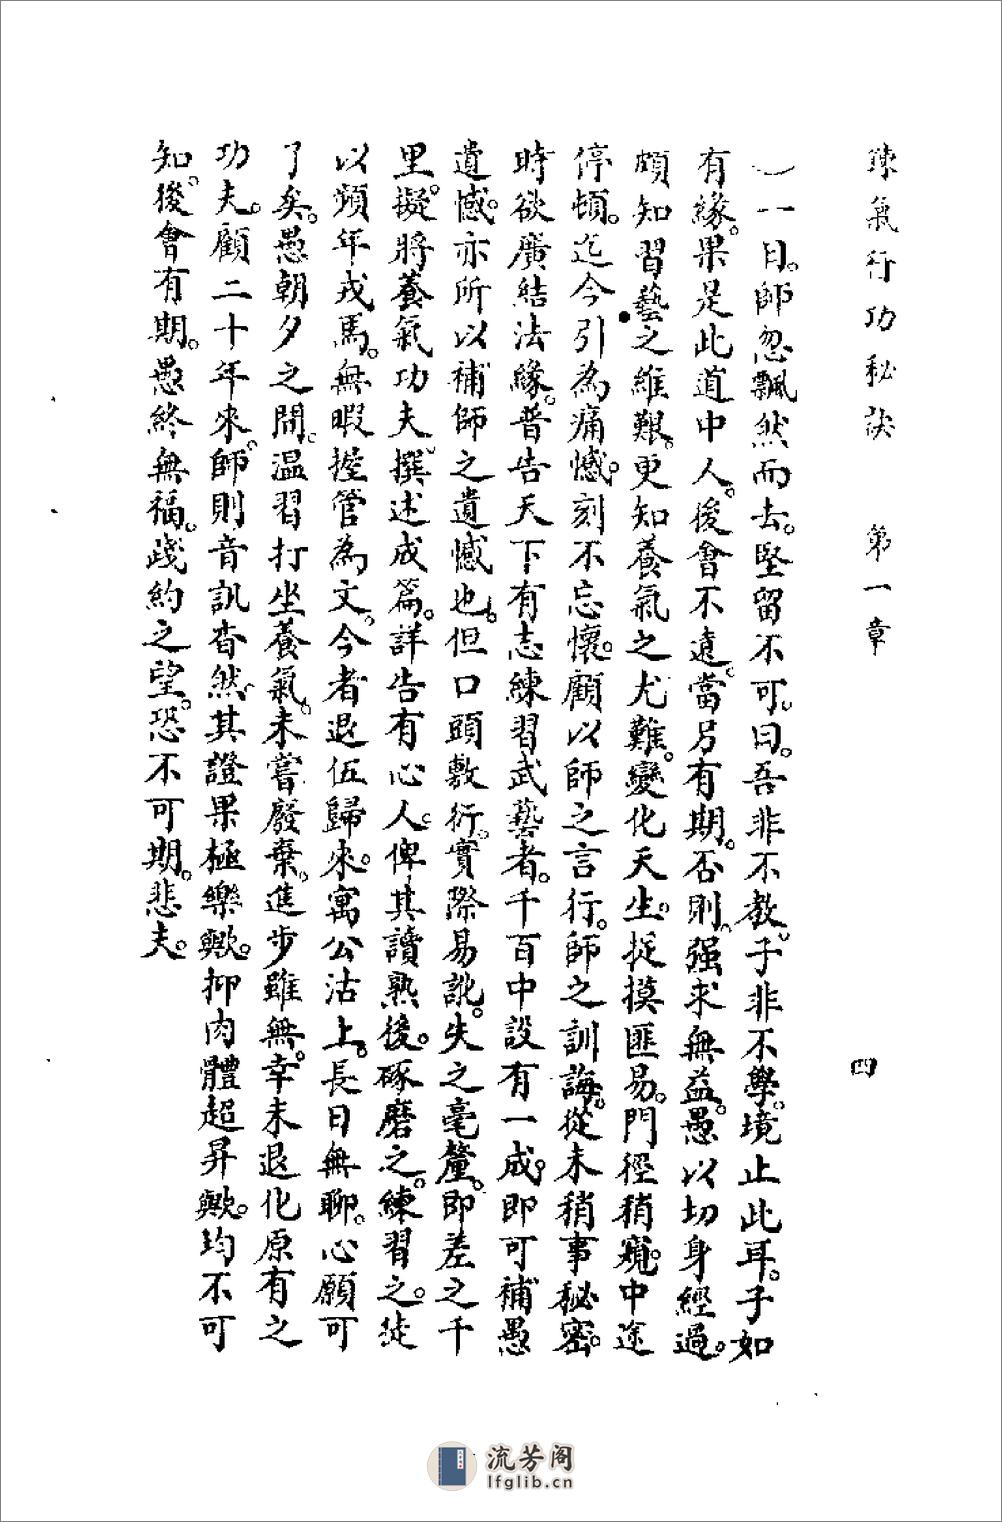 練氣行功秘訣　第一章　四
一日。師忽飄然而去。堅留不可。曰。吾非不教。子非不學。境止此耳。子如
有緣。果是此道中人。後會不遠。當另有期。否則。强求無益。愚以切身經過。
頗知習藝之維艱。更知養氣之尤難。變化天生。捉摸匪易。門徑稍窺。中途
停頓。迄今引為痛憾。刻不忘懷。顧以師之言行。師之訓誨。從未稍事秘密。
時欲廣結法緣。普告天下有志練習武藝者。千百中設有一成。即可補愚
遺憾。亦所以補師之遺憾也。但口頭敷衍。實際易訛。失之毫釐。即差之千
里。擬將養氣功夫。撰述成篇。詳告有心人。俾其讀熟後。琢磨之。練習之。徒
以頻年戎馬。無暇握管為文。今者退伍歸來。寓公沽上。長日無聊。心願可
了矣。愚朝夕之間。温習打坐養氣。未嘗廢棄。進步雖無。幸未退化。原有之
功夫。顧二十年來。師則音訊杳然。其證果極樂歟。抑肉體超昇歟。均不可
知。後會有期。愚終無福。踐約之望。恐不可期。悲夫。
流芳阁
lfglib.cn